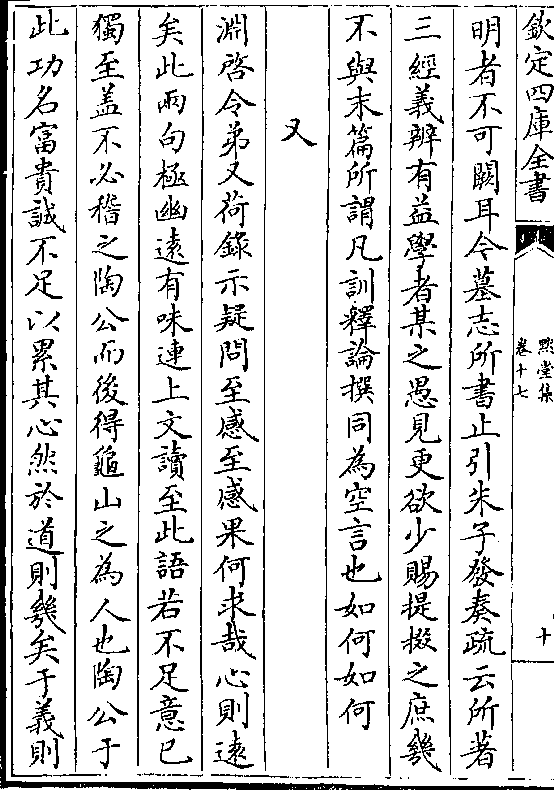 欽定四庫全書
熙堂集
卷十七
十
明者不可闕耳今墓志所書止引朱子發奏疏云所著
三經義辨有益學者某之愚見更欲少賜提掇之庶幾
不與末篇所謂凡訓釋論撰同為空言也如何如何
又
淵啓令弟又荷錄示疑問至感至感果何求哉心則遠
矣此兩句極幽遠有味連上文讀至此語若不足意已
獨至盖不必稽之陶公而後得龜山之為人也陶公于
此功名富貴誠不足以累其心然於道則幾矣于義則